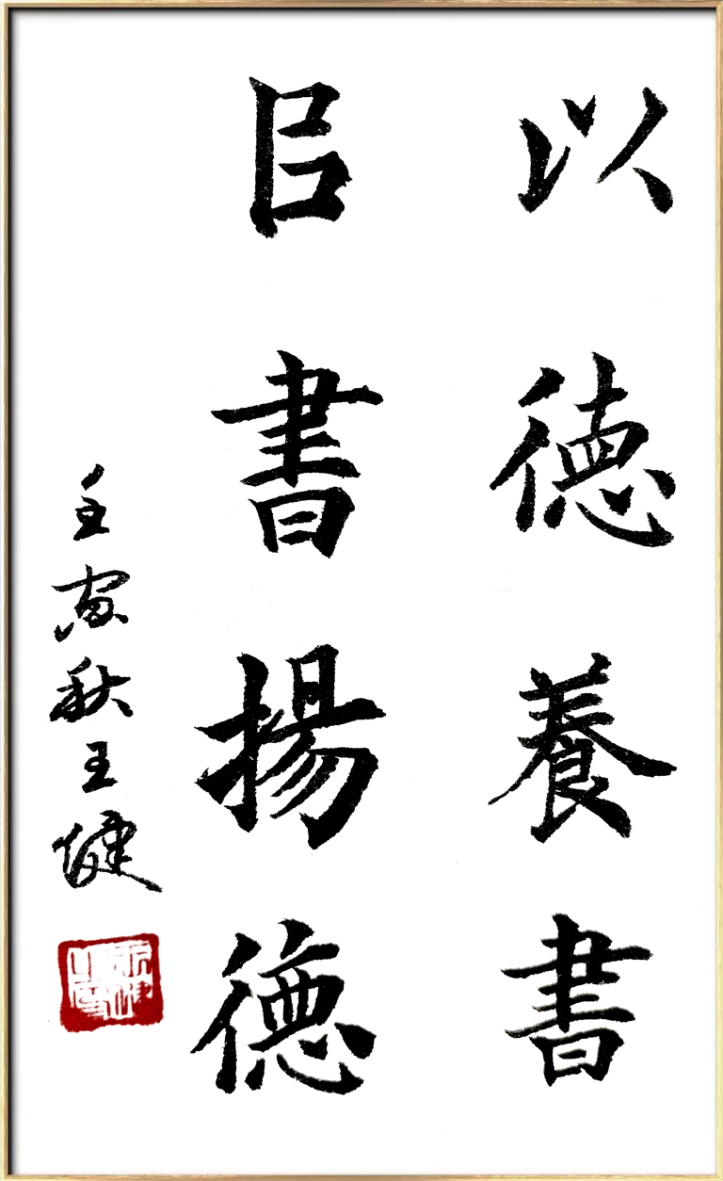 以德養書
㠯書揚德
壬寅秋王健